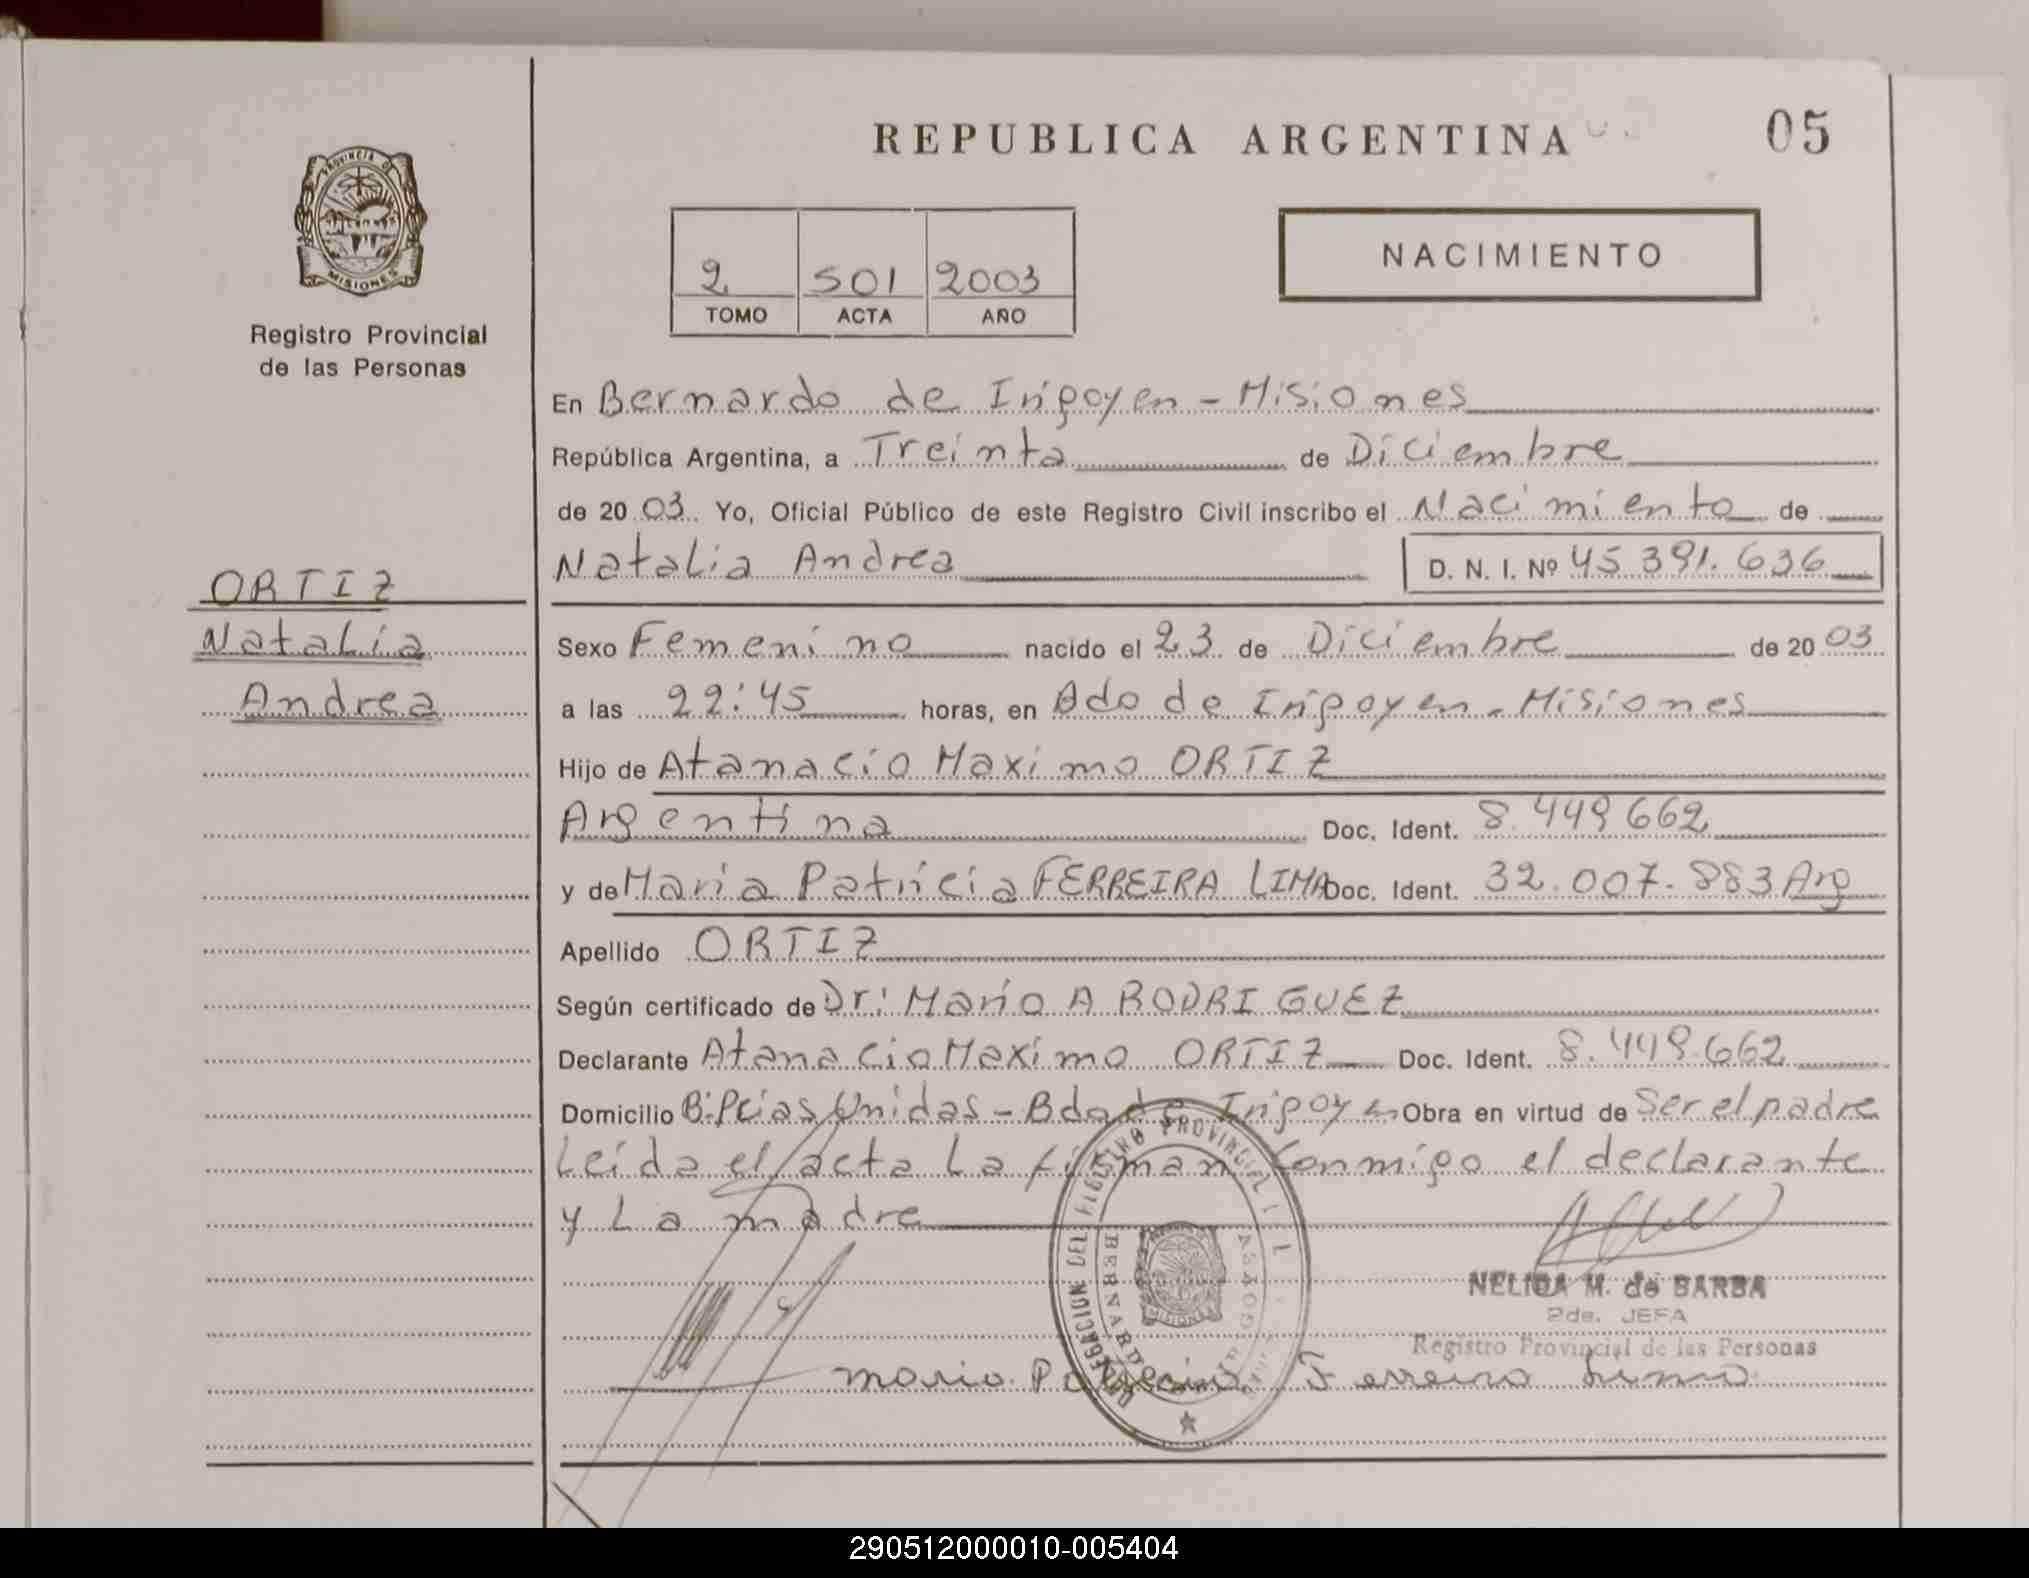 REPUBLICA ARGENTINA
05
PROVINCIA DE
MISIONES
Registro Provincial
de las Personas
2 501 2003
TOMO ACTA AÑO
NACIMIENTO
En Bernardo de Irigoyen - Misiones
República Argentina, a Treinta de Diciembre
de 20 03 Yo, Oficial Público de este Registro Civil inscribo el Nacimiento de
Natalia Andrea D. N. I. Nº 45.391.636
ORTIZ
Natalia
Andrea
Sexo Femenino nacido el 23 de Diciembre de 20 03
a las 22:45 horas, en Bdo de Irigoyen - Misiones
Hijo de Atanacio Maximo ORTIZ
Argentina Doc. Ident. 8.449.662
y de Maria Patricia FERREIRA LIMA Doc. Ident. 32.007.883 Arg
Apellido ORTIZ
Según certificado de Dr: Mario A RODRIGUEZ
Declarante Atanacio Maximo ORTIZ Doc. Ident. 8.449.662
Domicilio B: Pcias Unidas - Bdo de Irigoyen Obra en virtud de Ser el padre
Leida el acta La firman Conmigo el declarante
y La madre
NELIDA M. de BARBA
2da. JEFA
Registro Provincial de las Personas
Maria Patricia Ferreira Lima
290512000010-005404